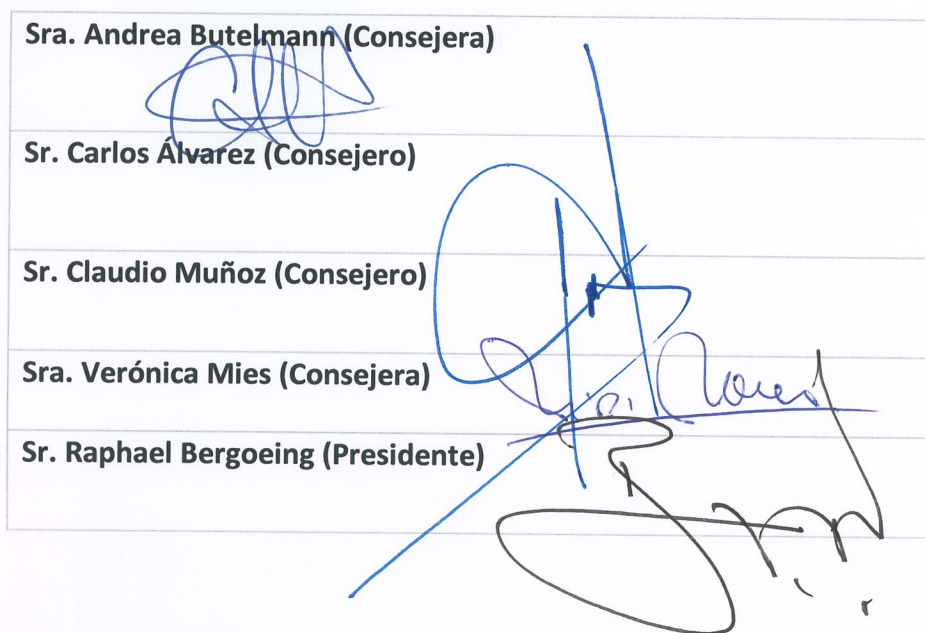 Sra. Andrea Butelmann (Consejera)
Sr. Carlos Álvarez (Consejero)
Sr. Claudio Muñoz (Consejero)
Sra. Verónica Mies (Consejera)
Sr. Raphael Bergoeing (Presidente)